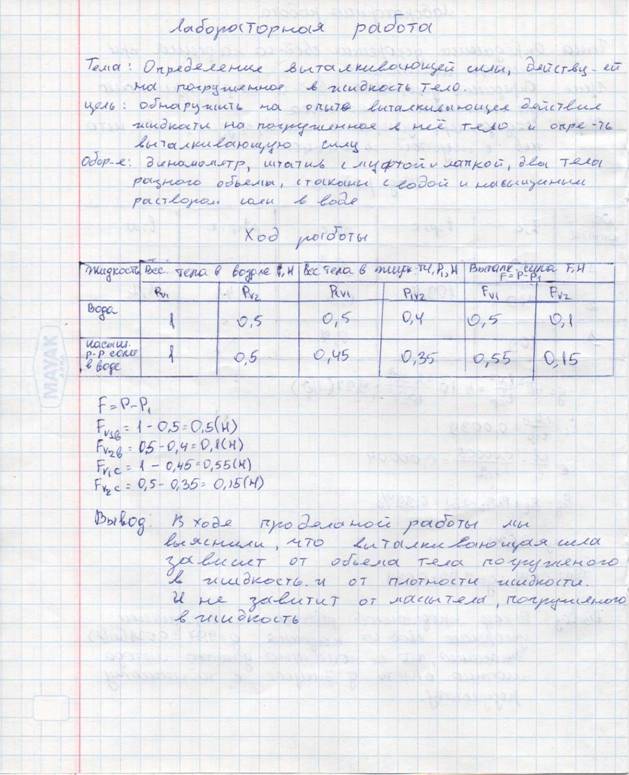 Лабораторная работа
Тема: Определение выталкивающей силы, действу-ей
на погруженное в жидкость тело.
цель: обнаружить на опыте выталкивающее действие
жидкости на погруженное в неё тело и опре-ть
выталкивающую силу
Обор-е: динамометр, штатив с муфтой и лапкой, два тела
разного объёма, стаканы с водой и насыщеным
раствором соли в воде
Ход работы
Жидкость Вес тела в воздухе P, H Вес тела в жидк-ти, P₁, H Выталк. сила F, H
F=P-P₁
Pv₁ Pv₂ P₁v₁ P₁v₂ Fv₁ Fv₂
Вода 1 0,5 0,5 0,4 0,5 0,1
насыщ.
р-р соли
в воде 1 0,5 0,45 0,35 0,55 0,15
MAYAK
F=P-P₁
Fv₁в = 1-0,5=0,5(H)
Fv₂в = 0,5-0,4=0,1(H)
Fv₁c = 1-0,45=0,55(H)
Fv₂c = 0,5-0,35=0,15(H)
Вывод: В ходе проделаной работы мы
выяснили, что виталкивающая сила
зависит от обьема тела погруженого
в жидкость и от плотности жидкости.
И не завитит от массы тела, погруженого
в жидкость